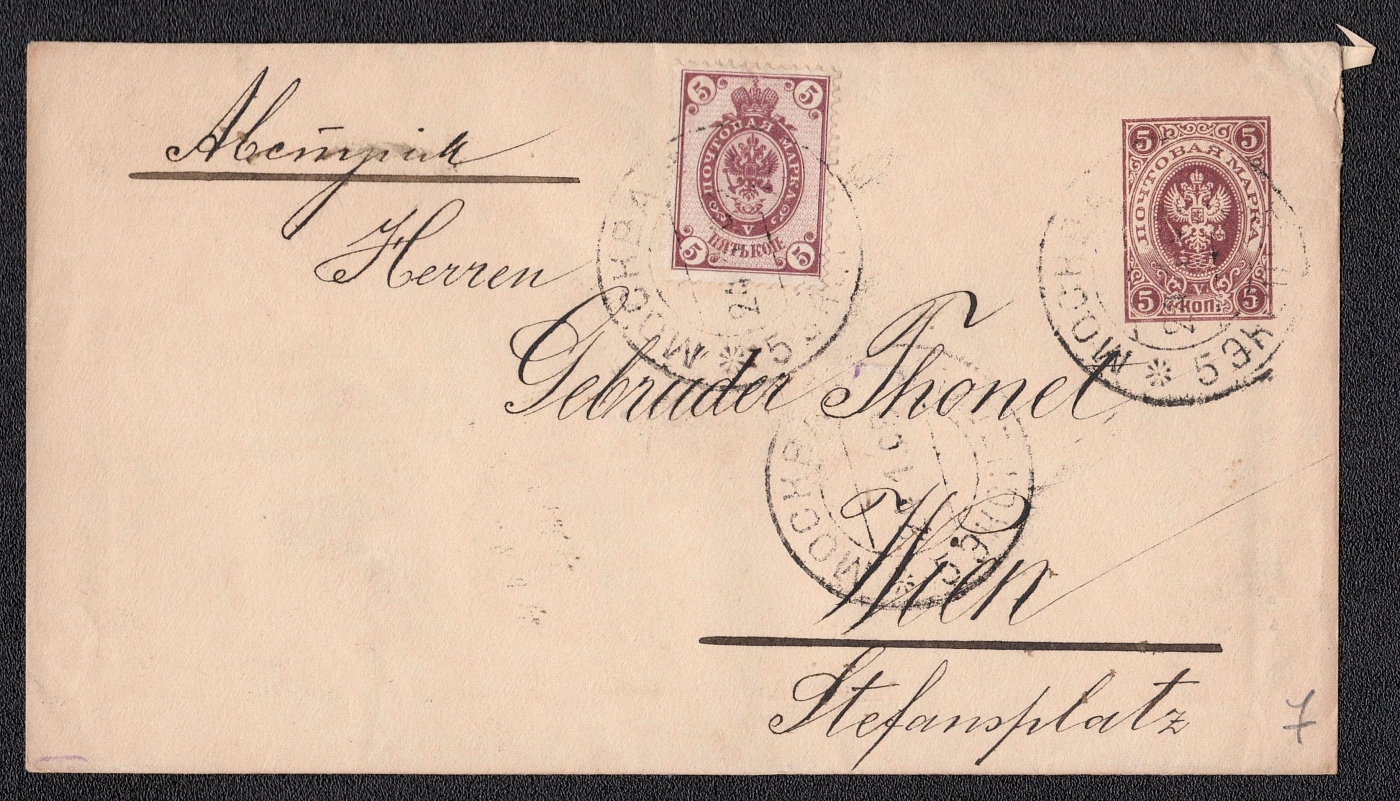 Австрія
Herren
Gebruder Thonet
Wien
Stefansplatz
7
5 5
ПОЧТОВАЯ МАРКА
V
ПЯТЬ КОП.
5 5
5 5
ПОЧТОВАЯ МАРКА
V
5 КОП. 5
МОСКВА
5 ЭКСП
МОСКВА
5 ЭКСП
МОСКВА
5 ЭКСПЕ